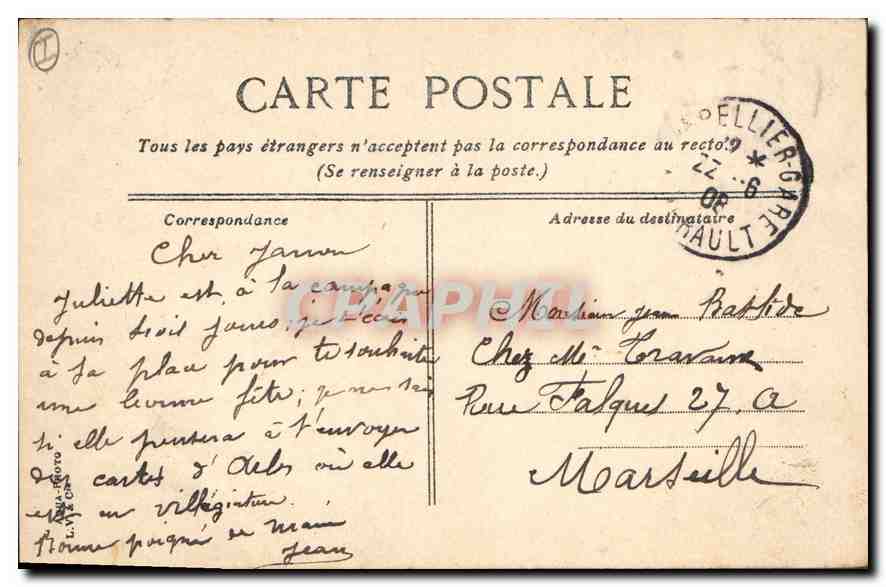 CARTE POSTALE
Tous les pays étrangers n'acceptent pas la correspondance au recto.
(Se renseigner à la poste.)
PELLIER-GARE
22 6
08
RAULT
Correspondance
Adresse du destinataire
Cher
Juliette est à la campagne
depuis trois jours; je t'écris
à sa place pour te souhaiter
une bonne fête; je ne sais
si elle pensera à t'envoyer
des cartes d' où elle
est en villégiature
Bonne poignée de main
Jean
Monsieur Jean Bastide
Chez Me
Rue Falques 27. a
Marseille
PHOTO
L.V. & Cie
CPAPHIL